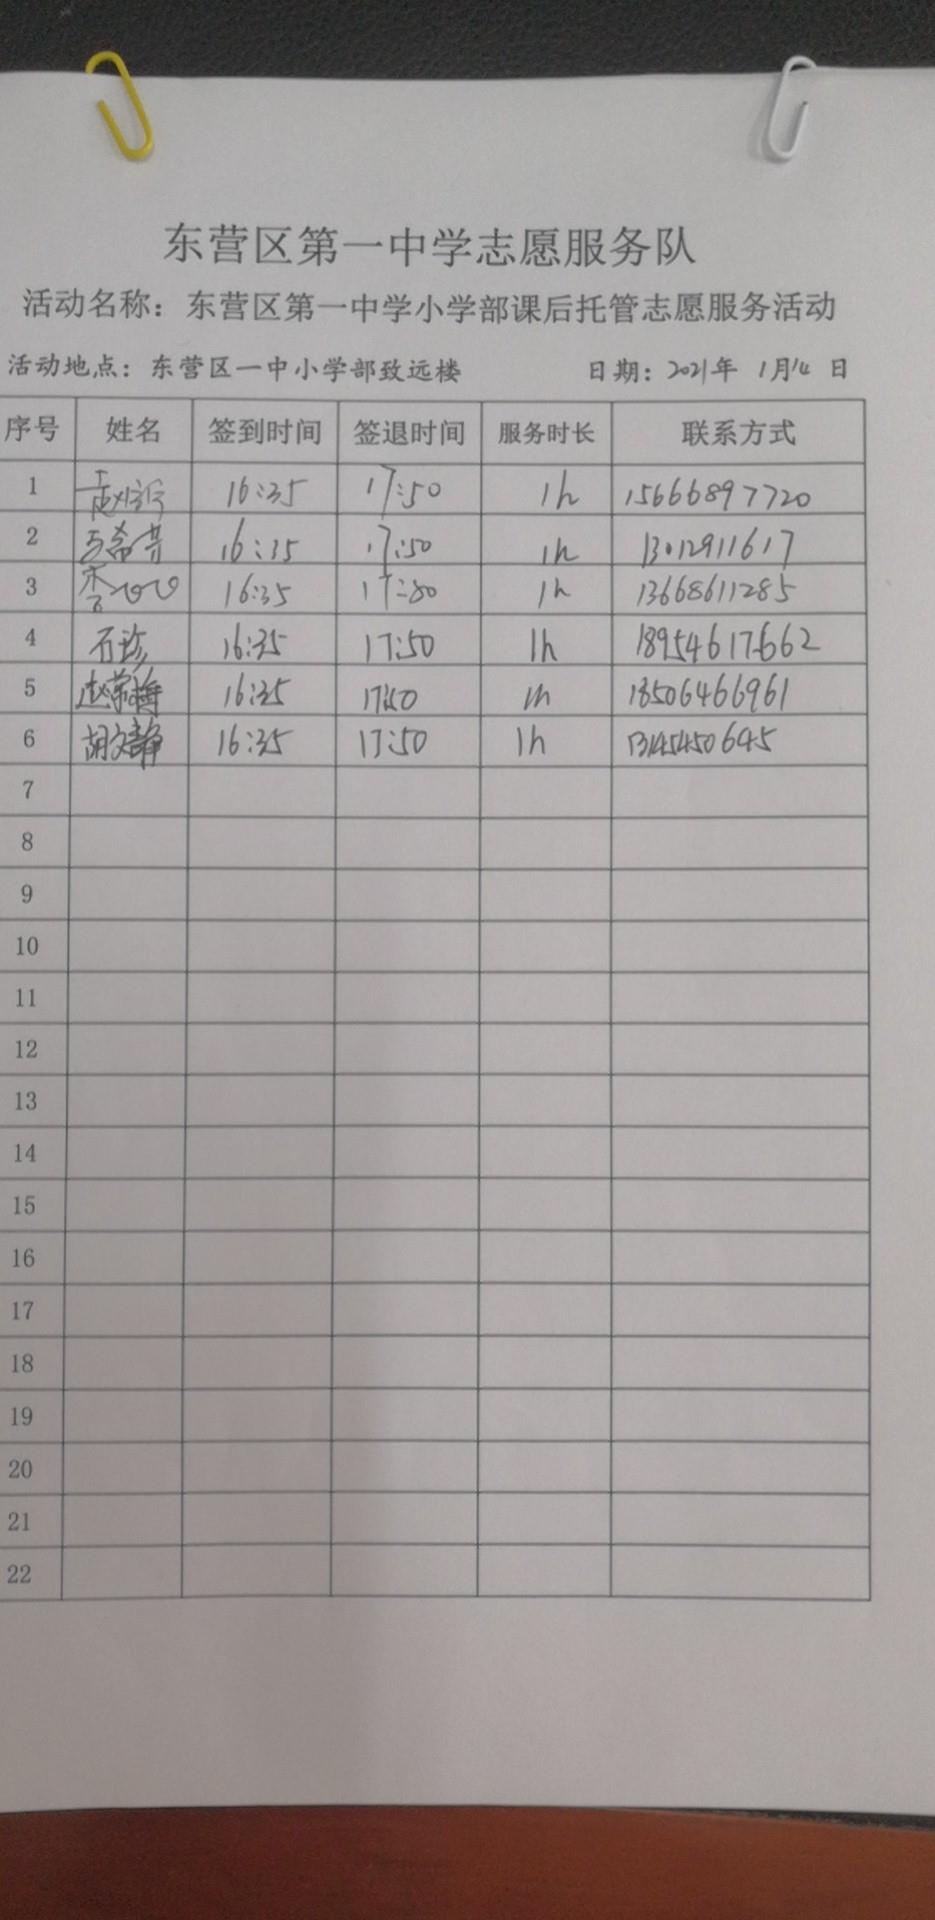 东营区第一中学志愿服务队
活动名称：东营区第一中学小学部课后托管志愿服务活动
活动地点：东营区一中小学部致远楼 日期：2021年 1月14 日
序号 姓名 签到时间 签退时间 服务时长 联系方式
1 16:35 17:50 1h 15666897720
2 16:35 17:50 1h 13012911617
3 16:35 17:50 1h 13668611285
4 石珍 16:35 17:50 1h 18954617662
5 赵荣梅 16:35 17:50 1h 18506466961
6 胡文静 16:35 17:50 1h 13145450645
7
8
9
10
11
12
13
14
15
16
17
18
19
20
21
22